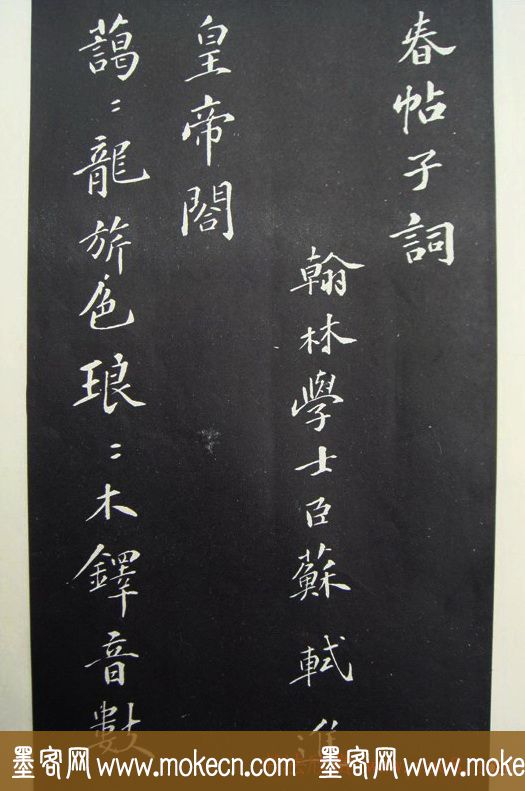 春帖子詞
翰林學士臣蘇軾進
皇帝閣
藹〻龍旂色琅〻木鐸音數
墨客网 www.mokecn.com 墨客网 www.mokecn.com